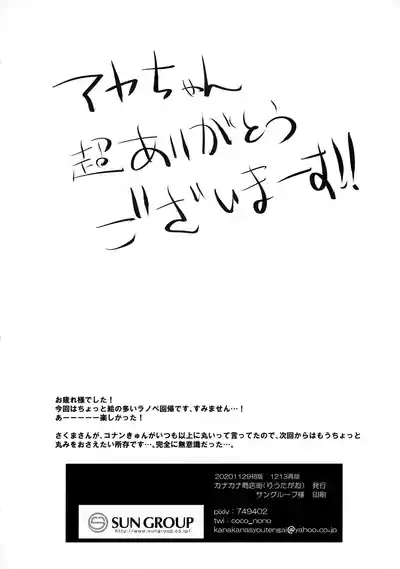 マヤちゃん
超ありがとう
ございまーす!!
お疲れ様でした！
今回はちょっと絵の多いラノベ回帰です、すみません…！
あーーーーー楽しかった！
さくまさんが、コナンきゅんがいつも以上に丸いって言ってたので、次回からはもうちょっと
丸みをおさえたい所存です…。完全に無意識だった…。
20201129初版 1213再版
カナカナ商店街(りうたがお) 発行
サングループ様 印刷
SUN GROUP
http://www.sungroup.co.jp/
pixiv：749402
twi：coco_nono
kanakanasyoutengai@yahoo.co.jp